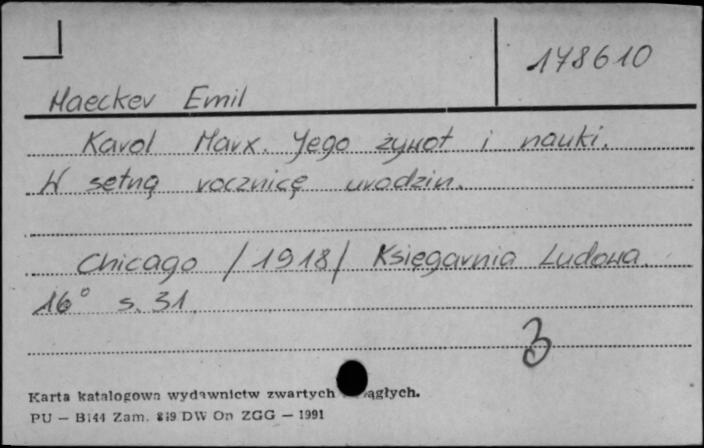 178610
Haecker Emil
Karol Marx. Jego żywot i nauki.
W setną rocznicę urodzin.
Chicago /1918/ Księgarnia Ludowa.
16° s. 31.
3
Karta katalogowa wydawnictw zwartych ągłych.
PU — B144 Zam. 819 DW Op ZGG — 1991